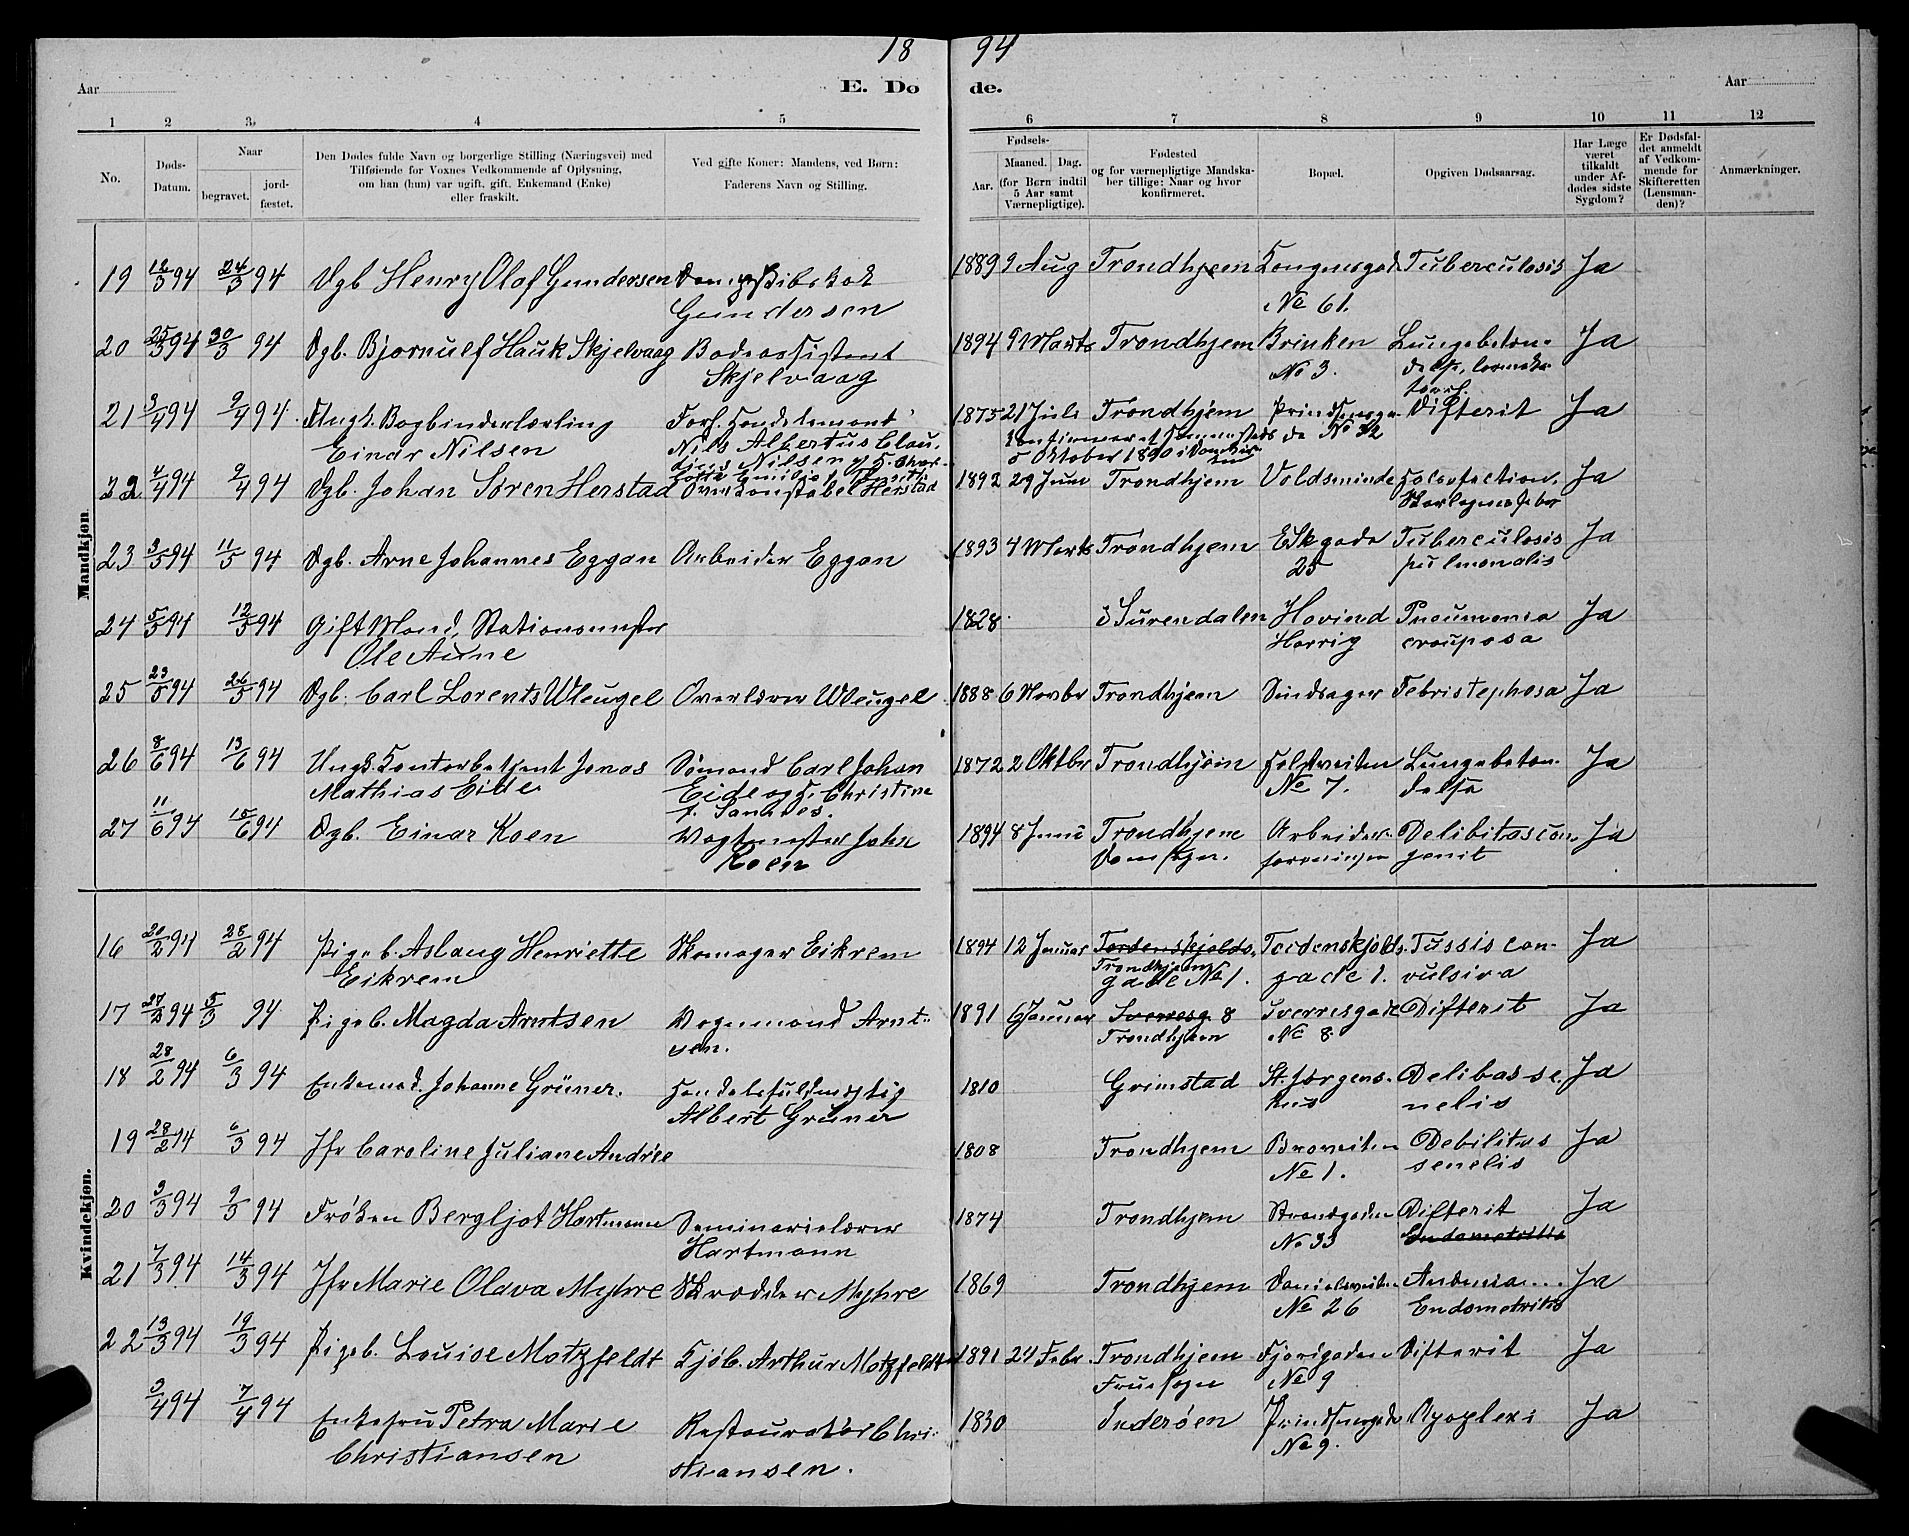 18 94
Aar
E. Dø de.
Aar
1 2 3 4 5 6 7 8 9 10 11 12
No.
Døds-Datum.
Naar
begravet. jord-fæstet.
Den Dødes fulde Navn og borgerlige Stilling (Næringsvei) med
Tilføiende for Voxnes Vedkommende af Oplysning,
om han (hun) var ugift, gift, Enkemand (Enke)
eller fraskilt.
Ved gifte Koner: Mandens, ved Børn:
Faderens Navn og Stilling.
Fødsels-
Aar. Maaned. Dag.
(for Børn indtil
5 Aar samt
Værnepligtige).
Fødested
og for værnepligtige Mandska-
ber tillige: Naar og hvor
konfirmeret.
Bopæl.
Opgiven Dødsaarsag.
Har Læge
været
tilkaldt
under Af-
dødes sidste
Sygdom?
Er Dødsfal-
det anmeldt
af Vedkom-
mende for
Skifteretten
(Lensman-
den)?
Anmærkninger.
Mandkjøn
19 18/3 94 24/3 94 Dgb Henry Olaf Gundersen 1889 9 Aug Trondhjem Kongensgade Tuberculosis Ja
Gundersen No 61.
20 25/3 94 30/3 94 Dgb. Bjørnulf Hauk Skjelvaag Bodeassistent 1894 9 Marts Trondhjem Brinken Lungebeten- Ja
Skjelvaag No 3. delse,
21 3/4 94 9/4 94 Ungk. Bogbinderlærling Forh. Handelsmand 1875 21 Juli Trondhjem Prindsensga- Difterit Ja
Einar Nilsen Nils Albertus Clau- de No 32
dius Nilsen og H. Char-
5 Oktober 1890 i Domkir
lotte Emilie
22 4/4 94 9/4 94 Dgb. Johan Søren Herstad Overkonstabel Herstad 1892 29 Juni Trondhjem Voldsminde Ja
Skarlagensfeber
23 3/5 94 11/5 94 Dgb. Arne Johannes Eggan Arbeider Eggan 1893 4 Marts Trondhjem E Skgade Tuberculosis Ja
25 pulmonalis
24 5/5 94 12/5 94 Gift Mand, Stationsmester 1828 Surendalen Hovind Pneumonia Ja
Ole Aune Horrig crouposa
25 23/5 94 26/5 94 Dgb. Carl Lorents Wleugel Overlærer Wleugel 1888 6 Novbr Trondhjem Sindsager Febris tyhosa Ja
26 8/6 94 13/6 94 Ungk. Kontorbetjent Jonas Sømand Carl Johan 1872 2 Oktbr Trondhjem Lungebeten- Ja
Mathias Eide Eide og H. Christine No 7. delse
f. Sandes.
27 11/6 94 15/6 94 Dgb. Einar Koen Vagtmester John 1894 8 Juni Trondhjem Arbeider- Delibitas con- Ja
Koen Domsogn. foreningen genit
Kvindekjøn.
16 20/2 94 28/2 94 Pigeb. Aslaug Henriette Skomager Eikrem 1894 12 Januar Tordenskjolds- Tordenskjolds- Tussis con- Ja
Eikrem Trondhjem
gade No 1. gade 1. vulsiva
17 27/2 94 5/3 94 Pigeb. Magda Arntsen Vognmand Arnt- 1891 6 Januar Sverresg 8 Sverresgade Difterit Ja
sen. Trondhjem No 8
18 28/2 94 6/3 94 Enkemad. Johanne Grüner. Handelsfuldmægtig 1810 Grimstad St. Jørgens- Delibas se- Ja
Albert Grüner hus nelis
19 28/2 94 6/3 94 Jfr Caroline Juliane Andrée 1808 Trondhjem Brøveiten Debilitas Ja
No 1. senelis
20 3/3 94 9/3 94 Frøken Bergljot Hartmann Seminarielærer 1874 Trondhjem Strandgaden Difterit Ja
Hartmann No 33 Endometritis
21 7/3 94 14/3 94 Jfr Marie Olava Myhre Skrædder Myhre 1869 Trondhjem Danielsveiten Ja
No 26 Endometritis
22 13/3 94 19/3 94 Pigeb. Louise Motzfeldt Kjøb. Arthur Motzfeldt 1891 24 Febr. Trondhjem Fjordgaden Difterit Ja
Fruesogn No 9
3/4 94 7/4 94 Enkefru Petra Marie Restauratør Chri- 1830 Inderøen Prindsensgade Apoplexi Ja
Christiansen stiansen. No 9.